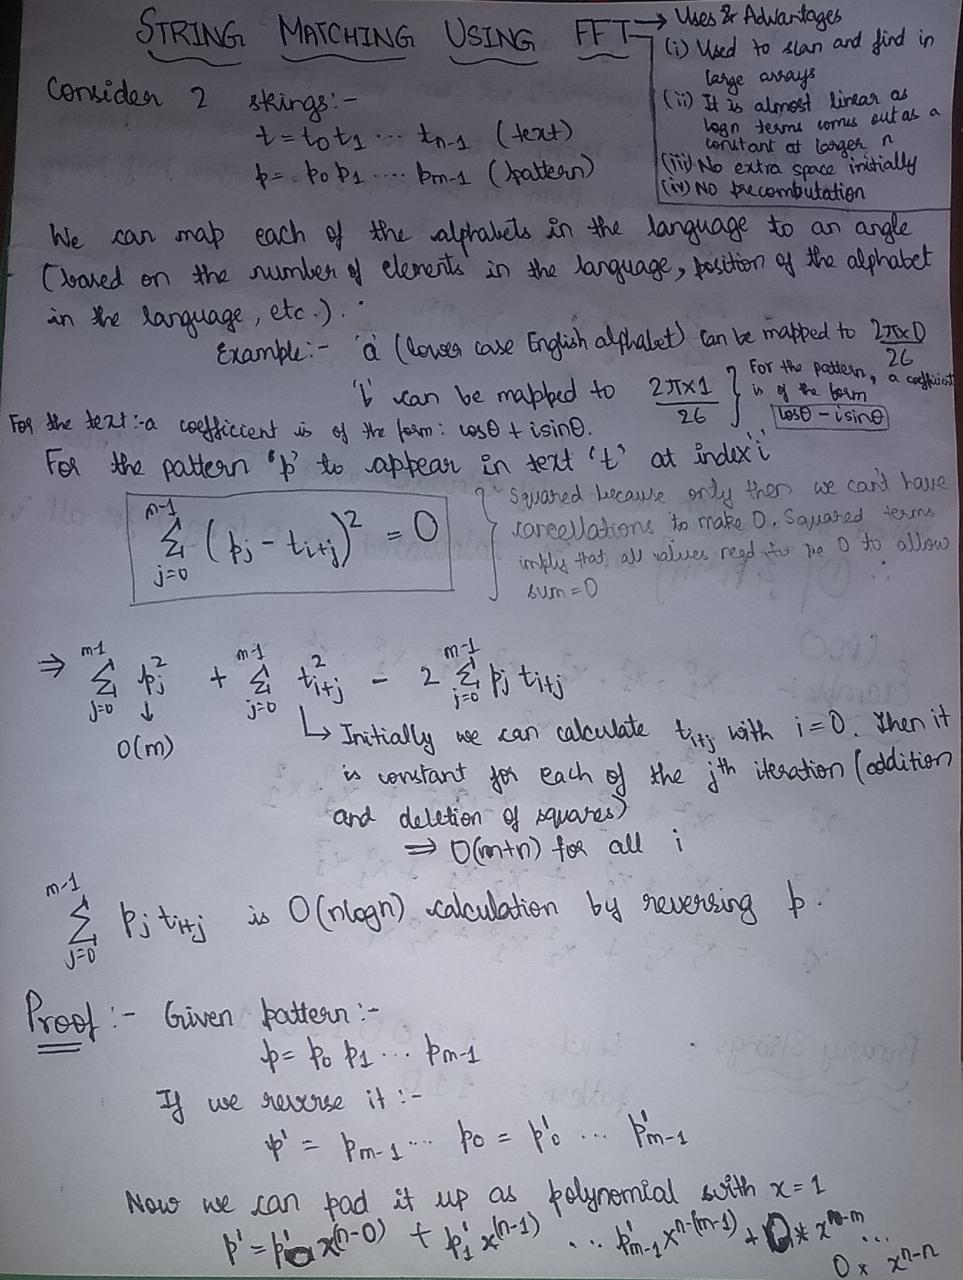 STRING MATCHING USING FFT → Uses & Advantages
(i) Used to scan and find in
large arrays
(ii) It is almost linear as
logn terms comes out as a
constant at larger n
(iii) No extra space initially
(iv) NO precomputation
Consider 2 strings:-
t = t₀ t₁ ... tₙ₋₁ (text)
p = p₀ p₁ .... pₘ₋₁ (pattern)
We can map each of the alphabets in the language to an angle
(based on the number of elements in the language, position of the alphabet
in the language, etc.).
Example:- 'a' (lower case English alphabet) can be mapped to 2π×0/26
'b' can be mapped to 2π×1/26 } For the pattern, a coefficient
is of the form
cosθ - isinθ
For the text:-a coefficient is of the form: cosθ + isinθ.
For the pattern 'p' to appear in text 't' at index 'i'
m-1 Σ j=0 (pⱼ - tᵢ₊ⱼ)² = 0
Squared because only then we can't have
cancellations to make 0. Squared terms
imply that all values need to be 0 to allow
sum = 0
⇒ m-1 Σ j=0 pⱼ² + m-1 Σ j=0 t²ᵢ₊ⱼ - 2 m-1 Σ j=0 pⱼ tᵢ₊ⱼ
↓ O(m)
↳ Initially we can calculate tᵢ₊ⱼ with i=0. Then it
is constant for each of the jᵗʰ iteration (addition
and deletion of squares)
⇒ O(m+n) for all i
m-1 Σ j=0 pⱼ tᵢ₊ⱼ is O(nlogn) calculation by reversing p.
Proof:- Given pattern:-
p = p₀ p₁ ... pₘ₋₁
If we reverse it :-
p' = pₘ₋₁ ... p₀ = p'₀ ... p'ₘ₋₁
Now we can pad it up as polynomial with x=1
p' = p'₀ x^(n-0) + p'₁ x^(n-1) ... p'ₘ₋₁ x^(n-(m-1)) + 0 * x^(n-m) ...
0 * x^(n-n)